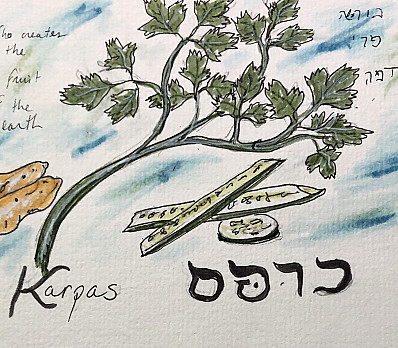 ho creates
the
fruit
the
earth
בורא
פרי
Karpas
כרפס